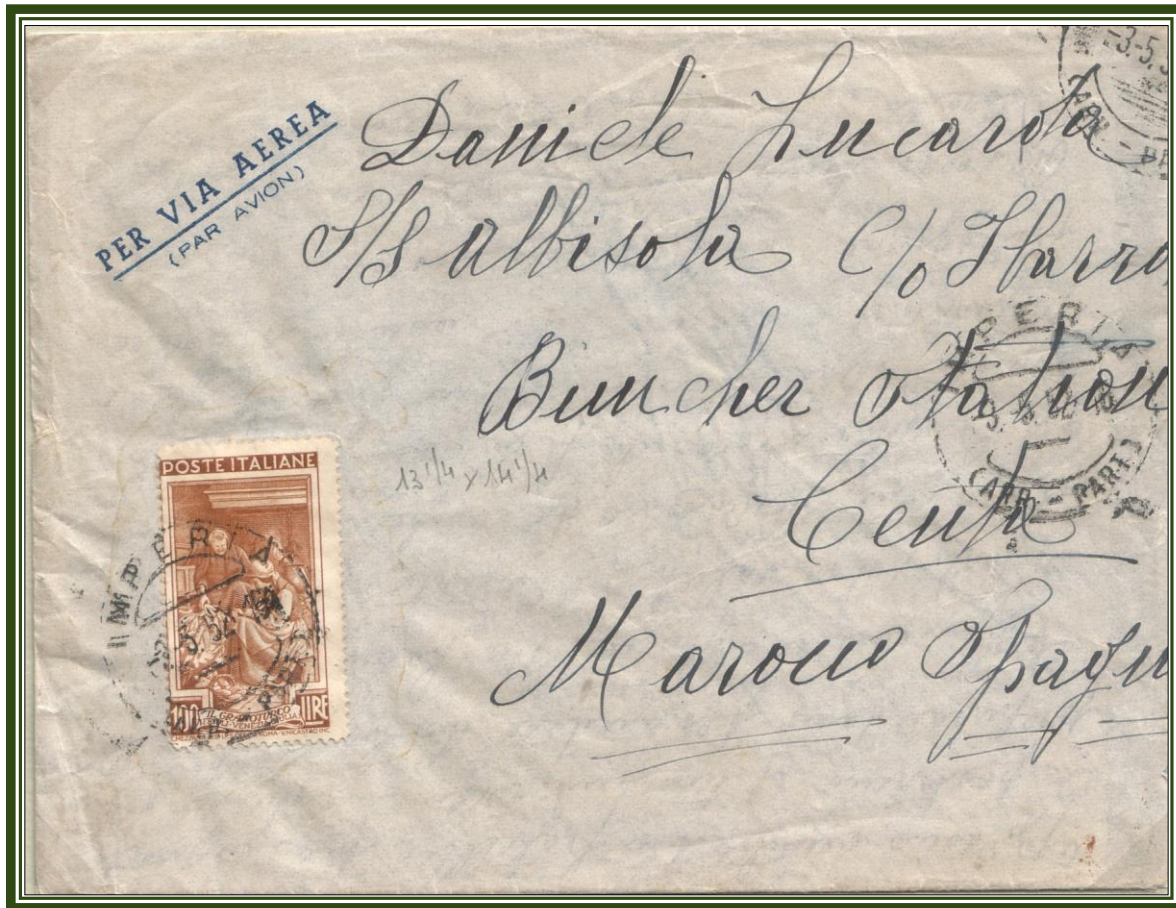 PER VIA AEREA
(PAR AVION)
Daniele Lucarota
S/S Albisola C/o Ibarra
Buncher Station
Ceuta
Marocco Spagn
13 1/4 x 14 1/4
POSTE ITALIANE
100 LIRE
IL GRANOTURCO
IMPERIA
IMPERIA
(ARR. - PART.)
-3.-5.5